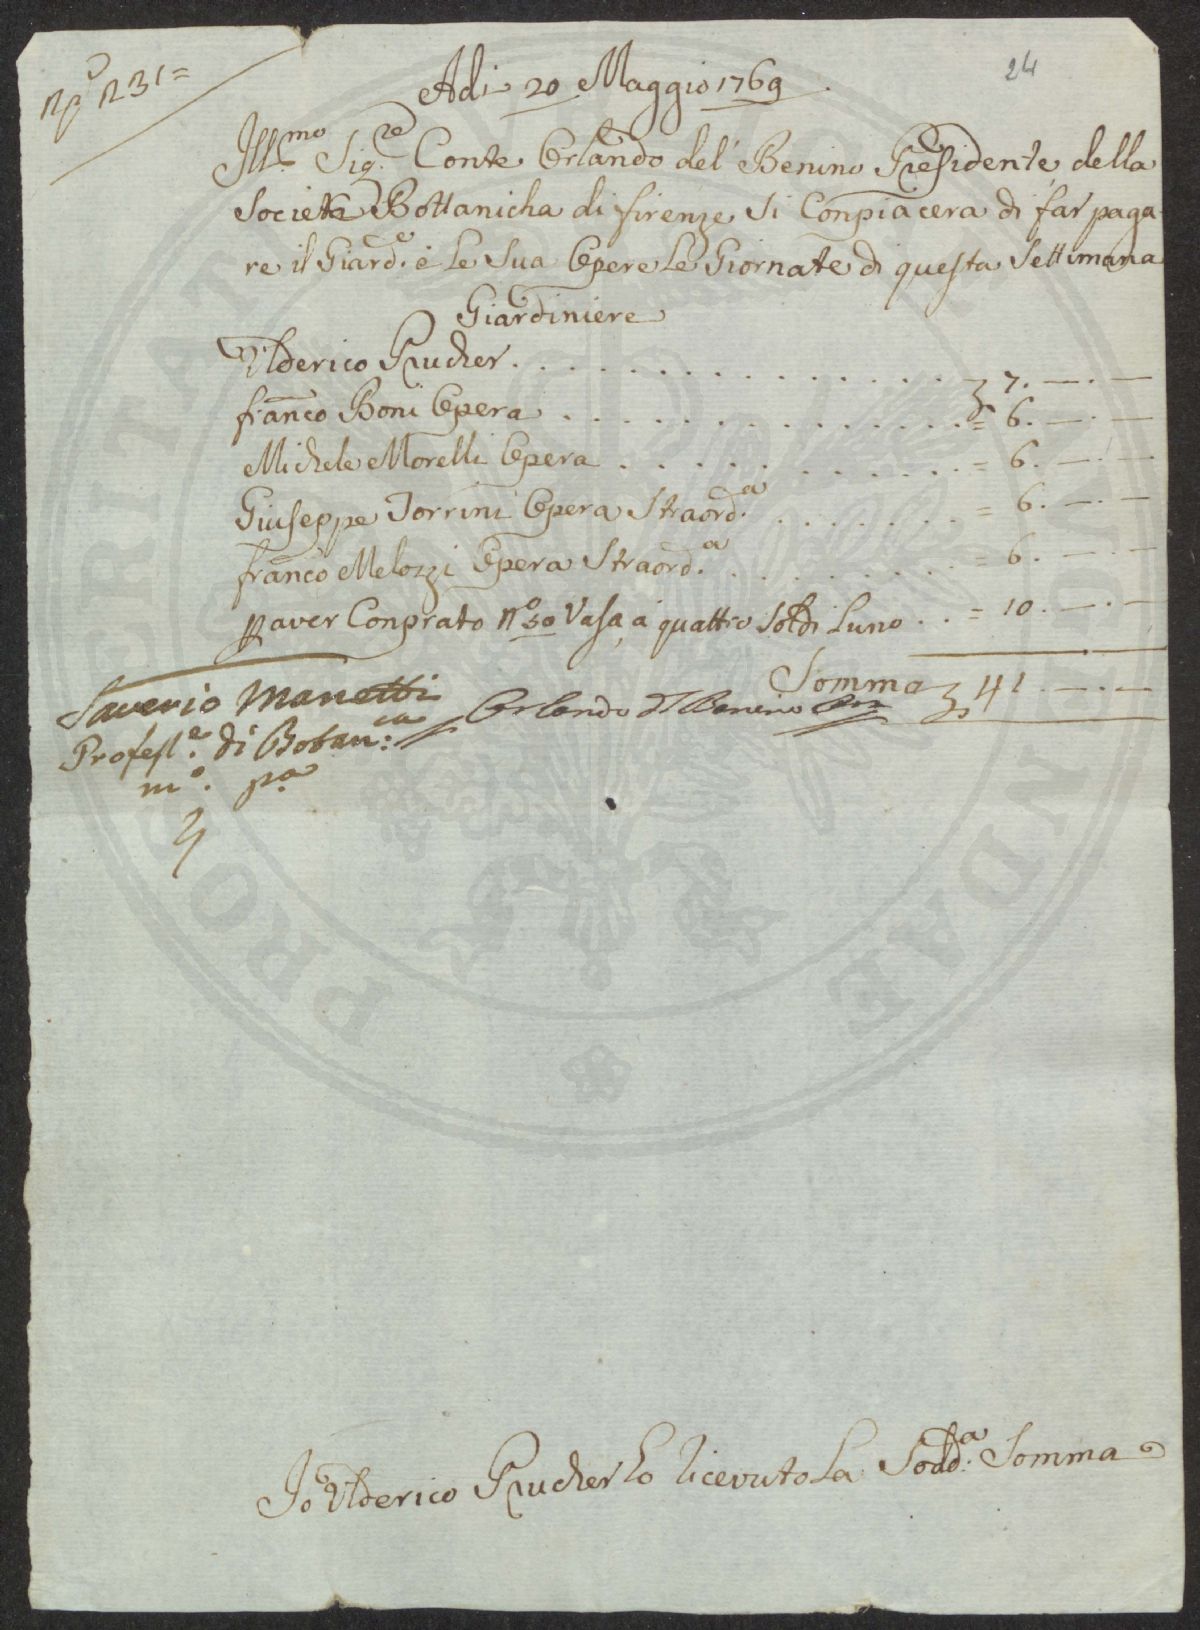 N.º 231=
24
Adi 20 Maggio 1769.
Ill.mo Sig.re Conte Orlando del' Benino Presidente della
Societa Bottanicha di firenze Si Conpiacera di far paga
re il Giard.e è le Sua Opere le Giornate di questa Settimana
Giardiniere
Ulderico Prucher . . . . . . 7. —. —
franco Boni Opera . . . . . . = 6. —. —
Michele Morelli Opera . . . . . . = 6. —. —
Giuseppe Torrini Opera Straord.a . . . . . . = 6. —. —
franco Melozzi Opera Straord.a . . . . . . = 6. —. —
P aver Conprato Nº 50 Vasa, a quattro Soldi Luno . . = 10. —. —
Somma 41. —. —
Saverio Manetti
Profess.e di Botan:ca
m.o p.a
Orlando D Benino
Io Ulderico Prucher ho ricevuto La Sodd.a Somma
PROSPERITATI PUBLICAE